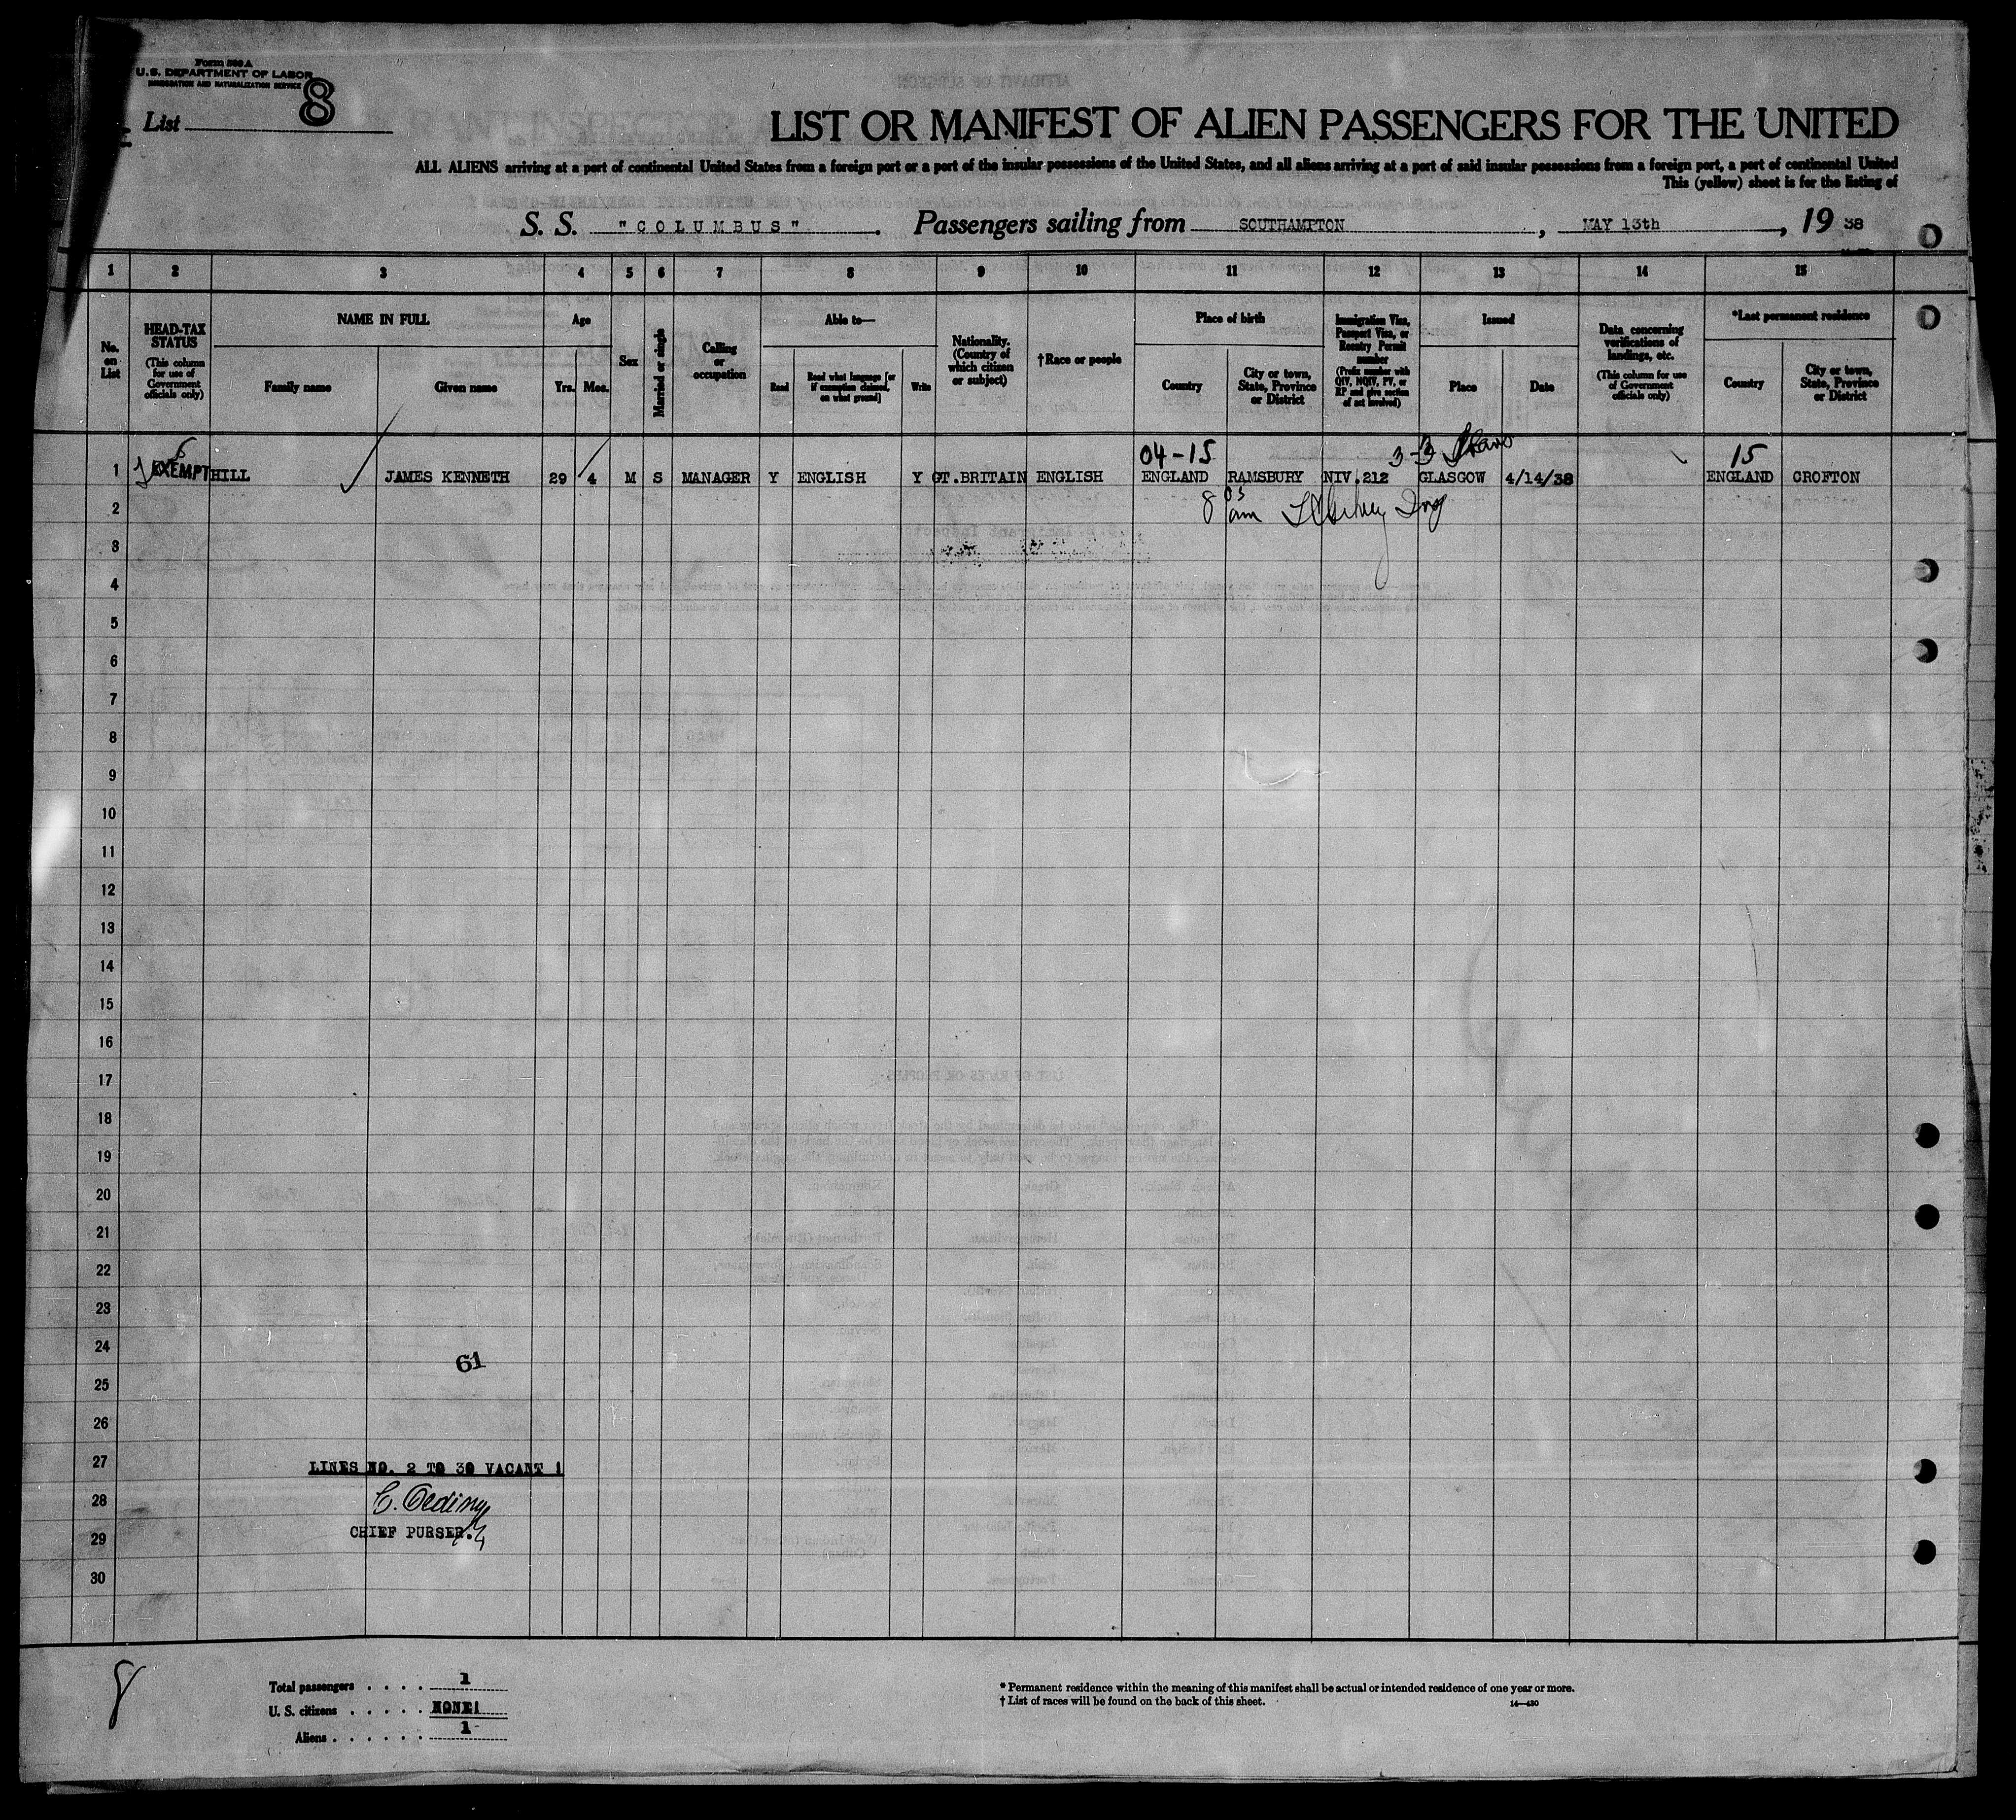 Form 500 A
U.S. DEPARTMENT OF LABOR
IMMIGRATION AND NATURALIZATION SERVICE
List 8
LIST OR MANIFEST OF ALIEN PASSENGERS FOR THE UNITED
ALL ALIENS arriving at a port of continental United States from a foreign port or a port of the insular possessions of the United States, and all aliens arriving at a port of said insular possessions from a foreign port, a port of continental United
This (yellow) sheet is for the listing of
S. S. "COLUMBUS". Passengers sailing from SOUTHAMPTON, MAY 13th, 19 38
1 2 3 4 5 6 7 8 9 10 11 12 13 14 15
No. on List
HEAD-TAX STATUS
(This column for use of Government officials only)
NAME IN FULL
Family name
Given name
Age
Yrs. Mos.
Sex
Married or single
Calling or occupation
Able to—
Read
Read what language [or if exemption claimed, on what ground]
Write
Nationality. (Country of which citizen or subject)
†Race or people
Place of birth
Country
City or town, State, Province or District
Immigration Visa, Passport Visa, or Reentry Permit number
(Prefix number with QIV, NQIV, PV, or RP and give section of act involved)
Issued
Place
Date
Data concerning verifications of landings, etc.
(This column for use of Government officials only)
*Last permanent residence
Country
City or town, State, Province or District
04-15 3-3 15
1 EXEMPT HILL JAMES KENNETH 29 4 M S MANAGER Y ENGLISH Y GT.BRITAIN ENGLISH ENGLAND RAMSBURY NIV.212 GLASGOW 4/14/38 ENGLAND CROFTON
2 8 05 am
3
4
5
6
7
8
9
10
11
12
13
14
15
16
17
18
19
20
21
22
23
24
61
25
26
27 LINES NO. 2 TO 30 VACANT !
28
29 CHIEF PURSER.
30
8
Total passengers . . . . 1
U. S. citizens . . . . . NONE!
Aliens . . . . . . 1
* Permanent residence within the meaning of this manifest shall be actual or intended residence of one year or more.
† List of races will be found on the back of this sheet.
14—430